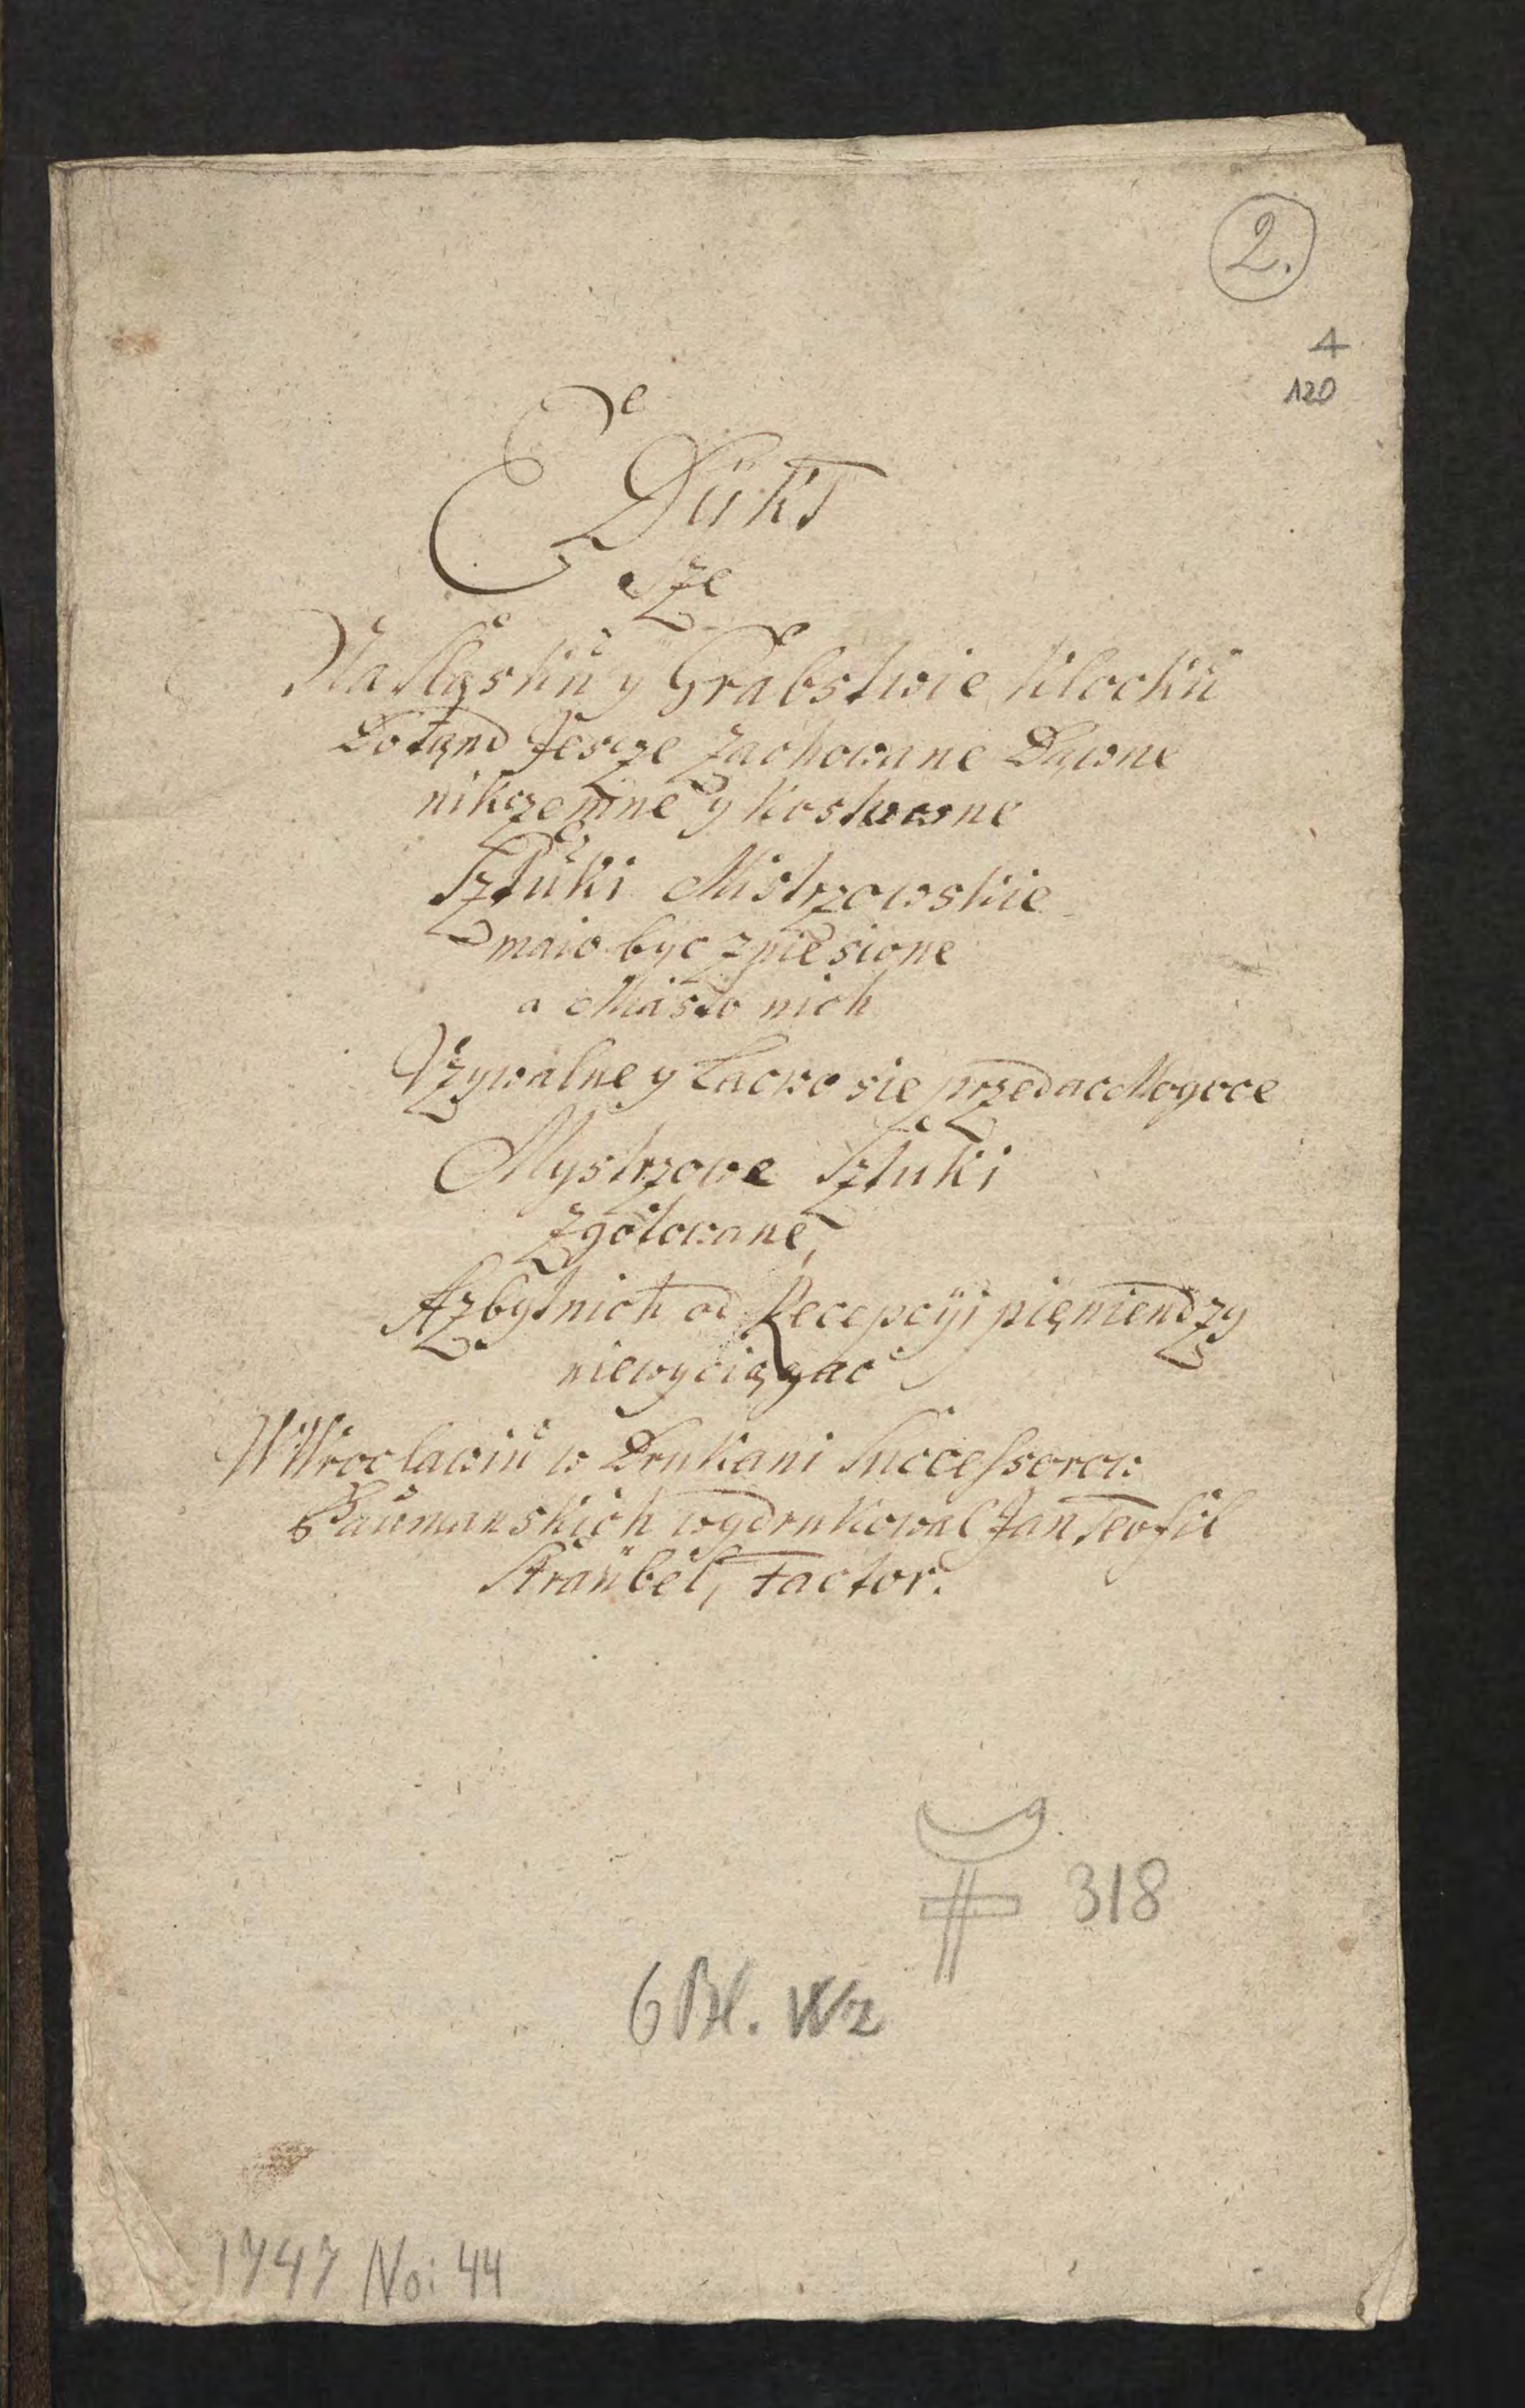 2.
4
120
EDükt
sze
Na sląskiü y Grabstwie Klockü
Dotąnd Jescze zachowane Dawne
nikczemne y Kostowne
Sztuki Mistrzowskie
maio byc zniesione
a Miasto nich
Vzywalne y Lacwo sie przedac Mogoce
Mystrzowe Sztuki
zgotowane,
A zbytnich od Recepcÿi pięniendzy
niewyciągac
W Wroclawiu w Drukani Successorow
Baumanskich wydrukowal Jan Teofil
Straübel, Factor.
318
6 Bl. W2
1747 No: 44